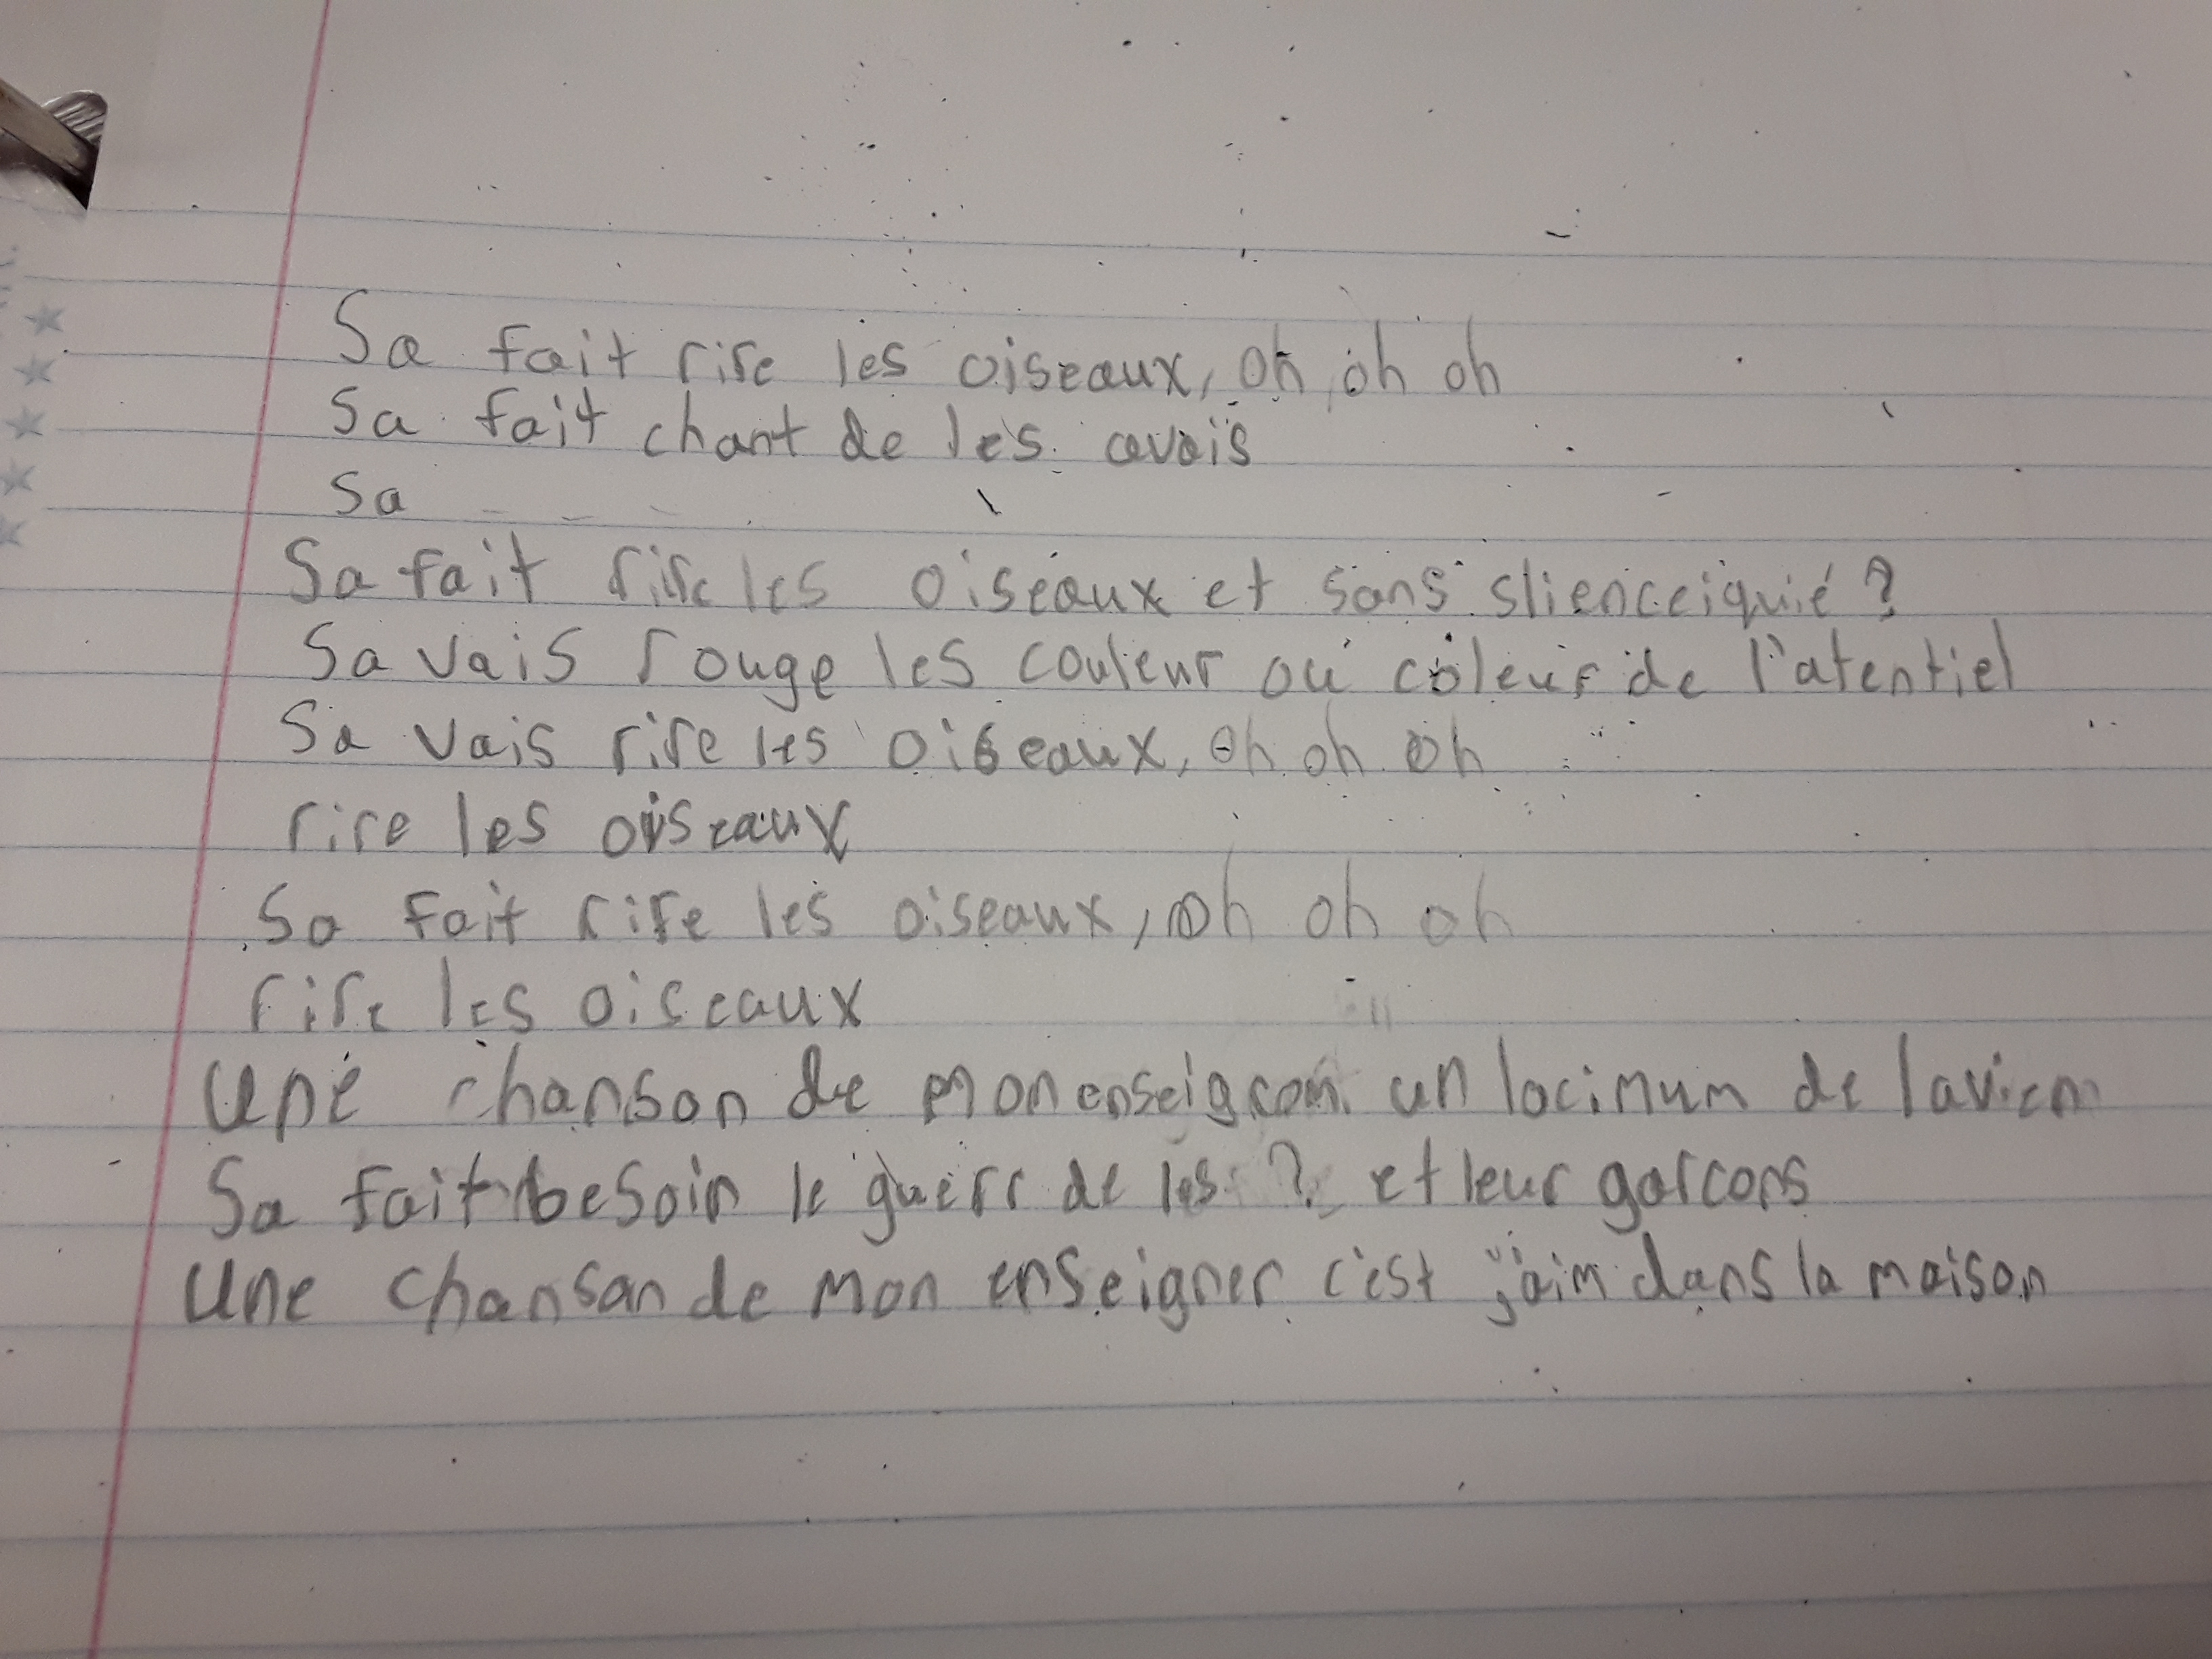 Sa fait rire les oiseaux, oh oh oh
Sa fait chant de les avais
Sa
Sa fait rire les oiseaux et sans slienceiquié ?
Sa vais rouge les couleur ou coleur de l'atentiel
Sa vais rire les oiseaux, oh oh oh
rire les oiseaux
Sa fait rire les oiseaux, oh oh oh
rire les oiseaux
Une chanson de mon un locimum de
Sa fait besoin le guerr de les ? et leur garcons
Une chansan de mon enseigner c'est j'aim dans la maison